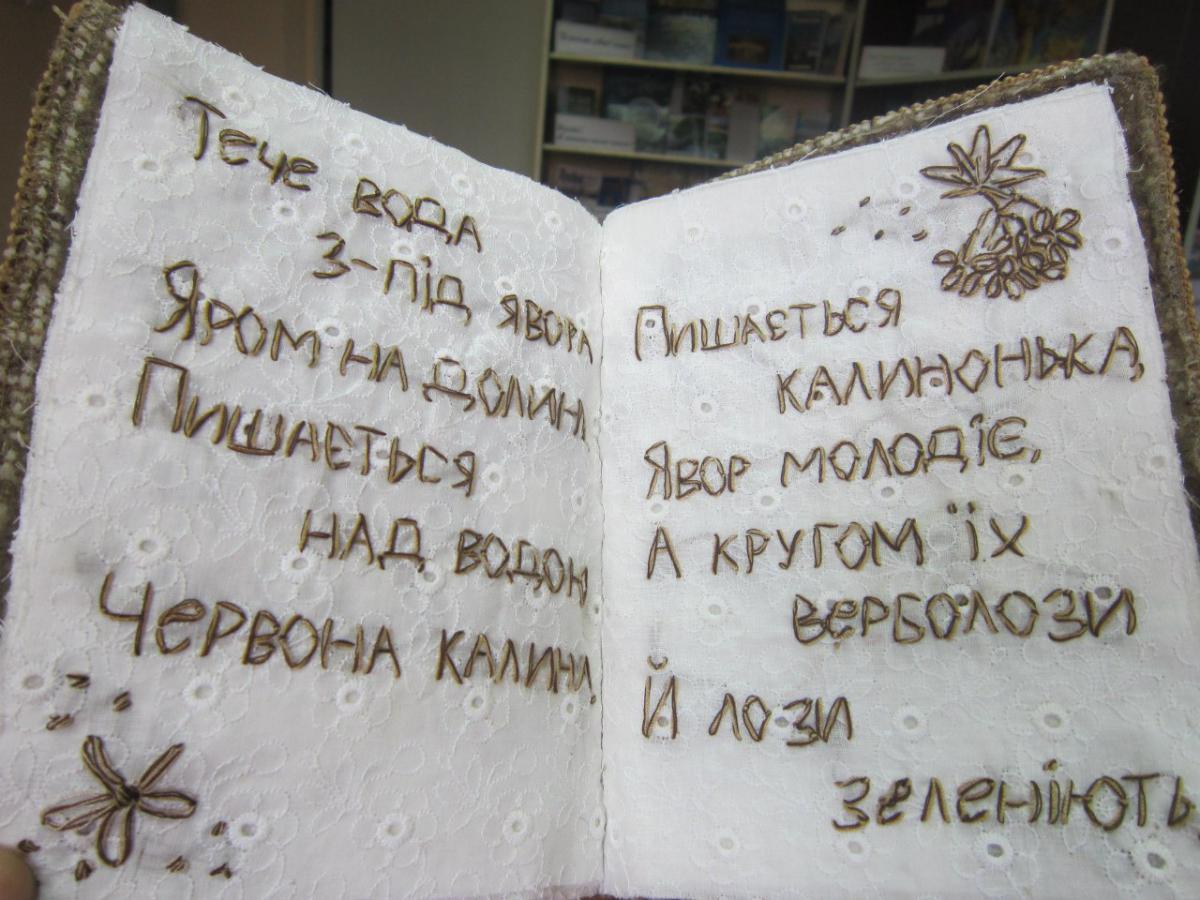 Тече вода
з-під явора
Яром на долин
Пишається
над водою
Червона калина,
Пишається
калинонька,
Явор молодіє,
А кругом їх
верболози
Й лози
зеленіють